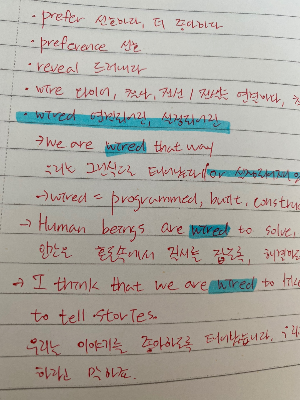 · prefer 선호하다, 더 좋아하다
· preference 선호
· reveal 드러내다
· wire 와이어, 철사, 전선 / 전선을 연결하다,
· wired 연결되어진, 설정되어진
→ we are wired that way
우리는 그런식으로 태어났다 (or
→ wired = programmed, built, construc
→ Human beings are wired to solve,
인간은 혼돈속에서 질서를 잡도록, 해결하도록
→ I think that we are wired to
to tell stories.
우리는 이야기를 좋아하도록 태어났습니다,
하라고 말하죠.